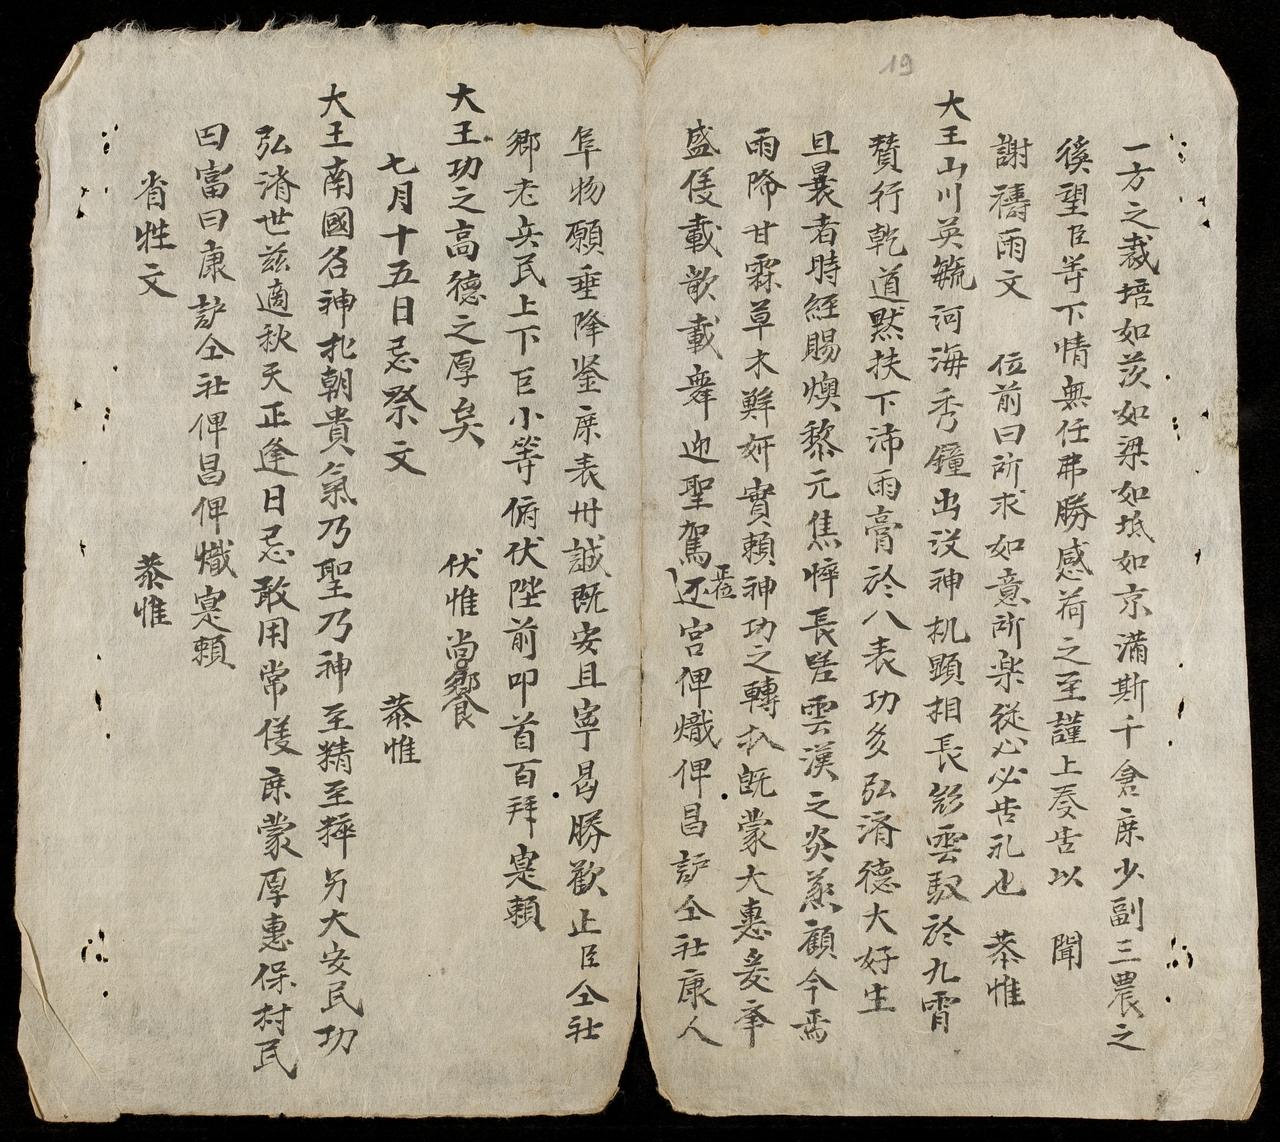 19
一方之栽培如茨如梁如坻如京滿斯千倉庶少副三農之
後望臣等下情無任弗勝感荷之至謹上奏告以 聞
謝禱雨文 位前曰所求如意所楽從心必告礼也 恭惟
大王山川英毓河海秀鐘出没神机顕相長彩雲馭於九霄
賛行乾道黙扶下沛雨膏於八表功多弘濟德大好生
旦曩者時經賜燠黎元焦悴長嗟雲漢之炎蒸顧今焉
雨降甘霖草木鮮妍實頼神功之轉扒既蒙大惠爰牽
盛僾載歆載舞迎聖駕䢏还宮俾熾俾昌許仝社康人
阜物願垂降鉴庶表卅誠既安且寧曷勝歡止臣仝社
鄉老兵民上下巨小等俯伏陛前叩首百拜寔頼
大王功之高德之厚矣 伏惟尚饗
七月十五日忌祭文 恭惟
大王南國名神北朝貴氣乃聖乃神至精至粹另大安民功
弘済世兹適秋天正逢日忌敢用常僾庶蒙厚惠保村民
曰富曰康許仝社俾昌俾熾寔頼
省牲文 恭惟